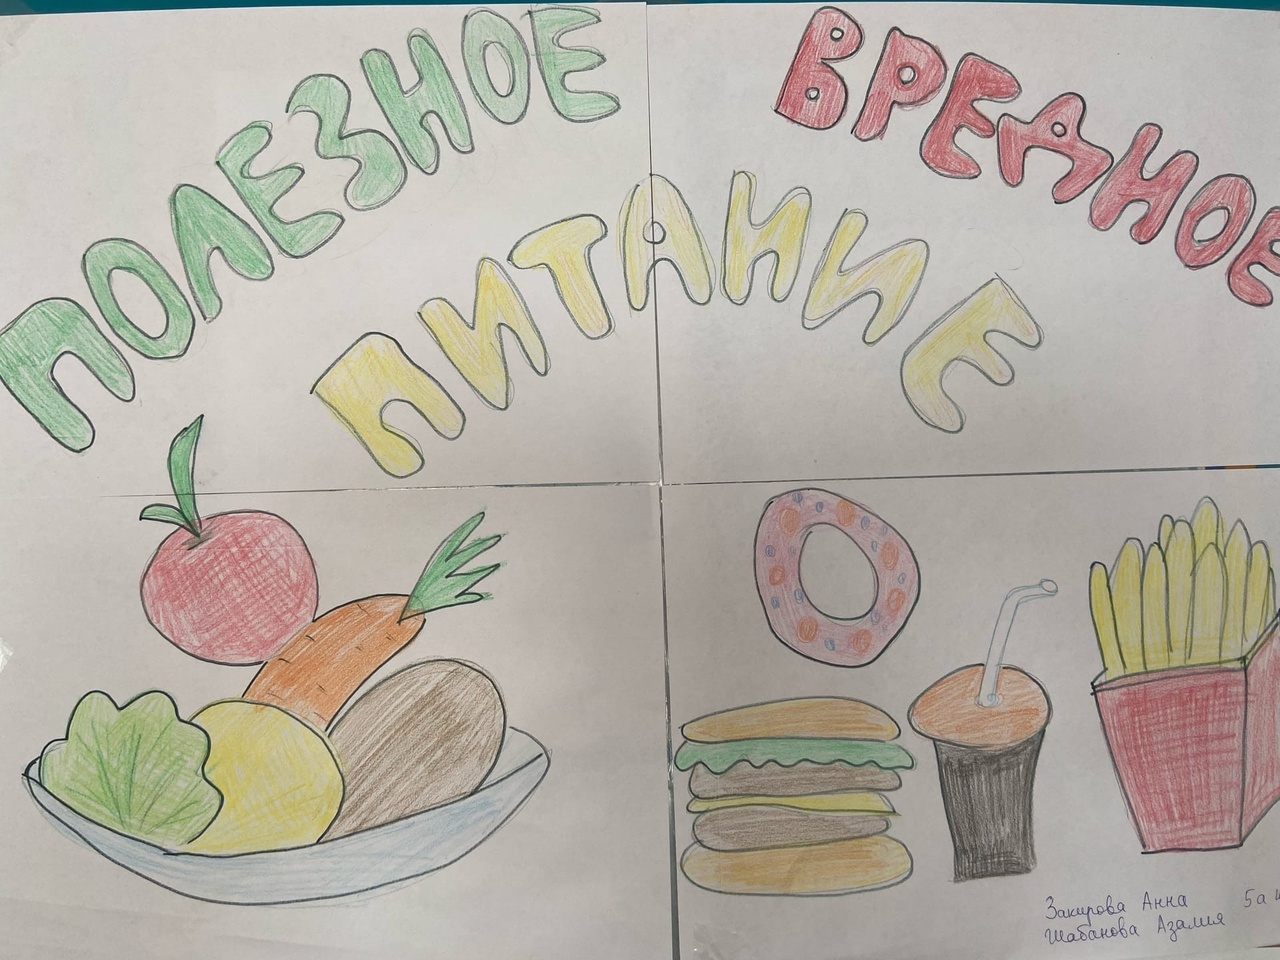 ПОЛЕЗНОЕ
ВРЕДНОЕ
ПИТАНИЕ
Закирова Анна 5а
Шабанова Азалия